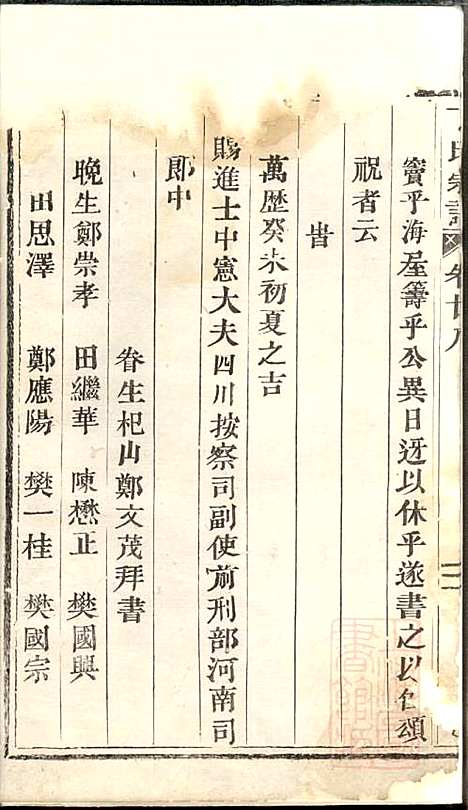 氏宗譜 卷廿八
竇乎海屋籌乎公異日迓以休乎遂書之以伫頌
祝者云
旹
萬歷癸未初夏之吉
賜進士中憲大夫四川按察司副使前刑部河南司
郎中
眷生杞山鄭文茂拜書
晚生鄭崇孝 田繼華 陳懋正 樊國興
田思澤 鄭應陽 樊一桂 樊國宗